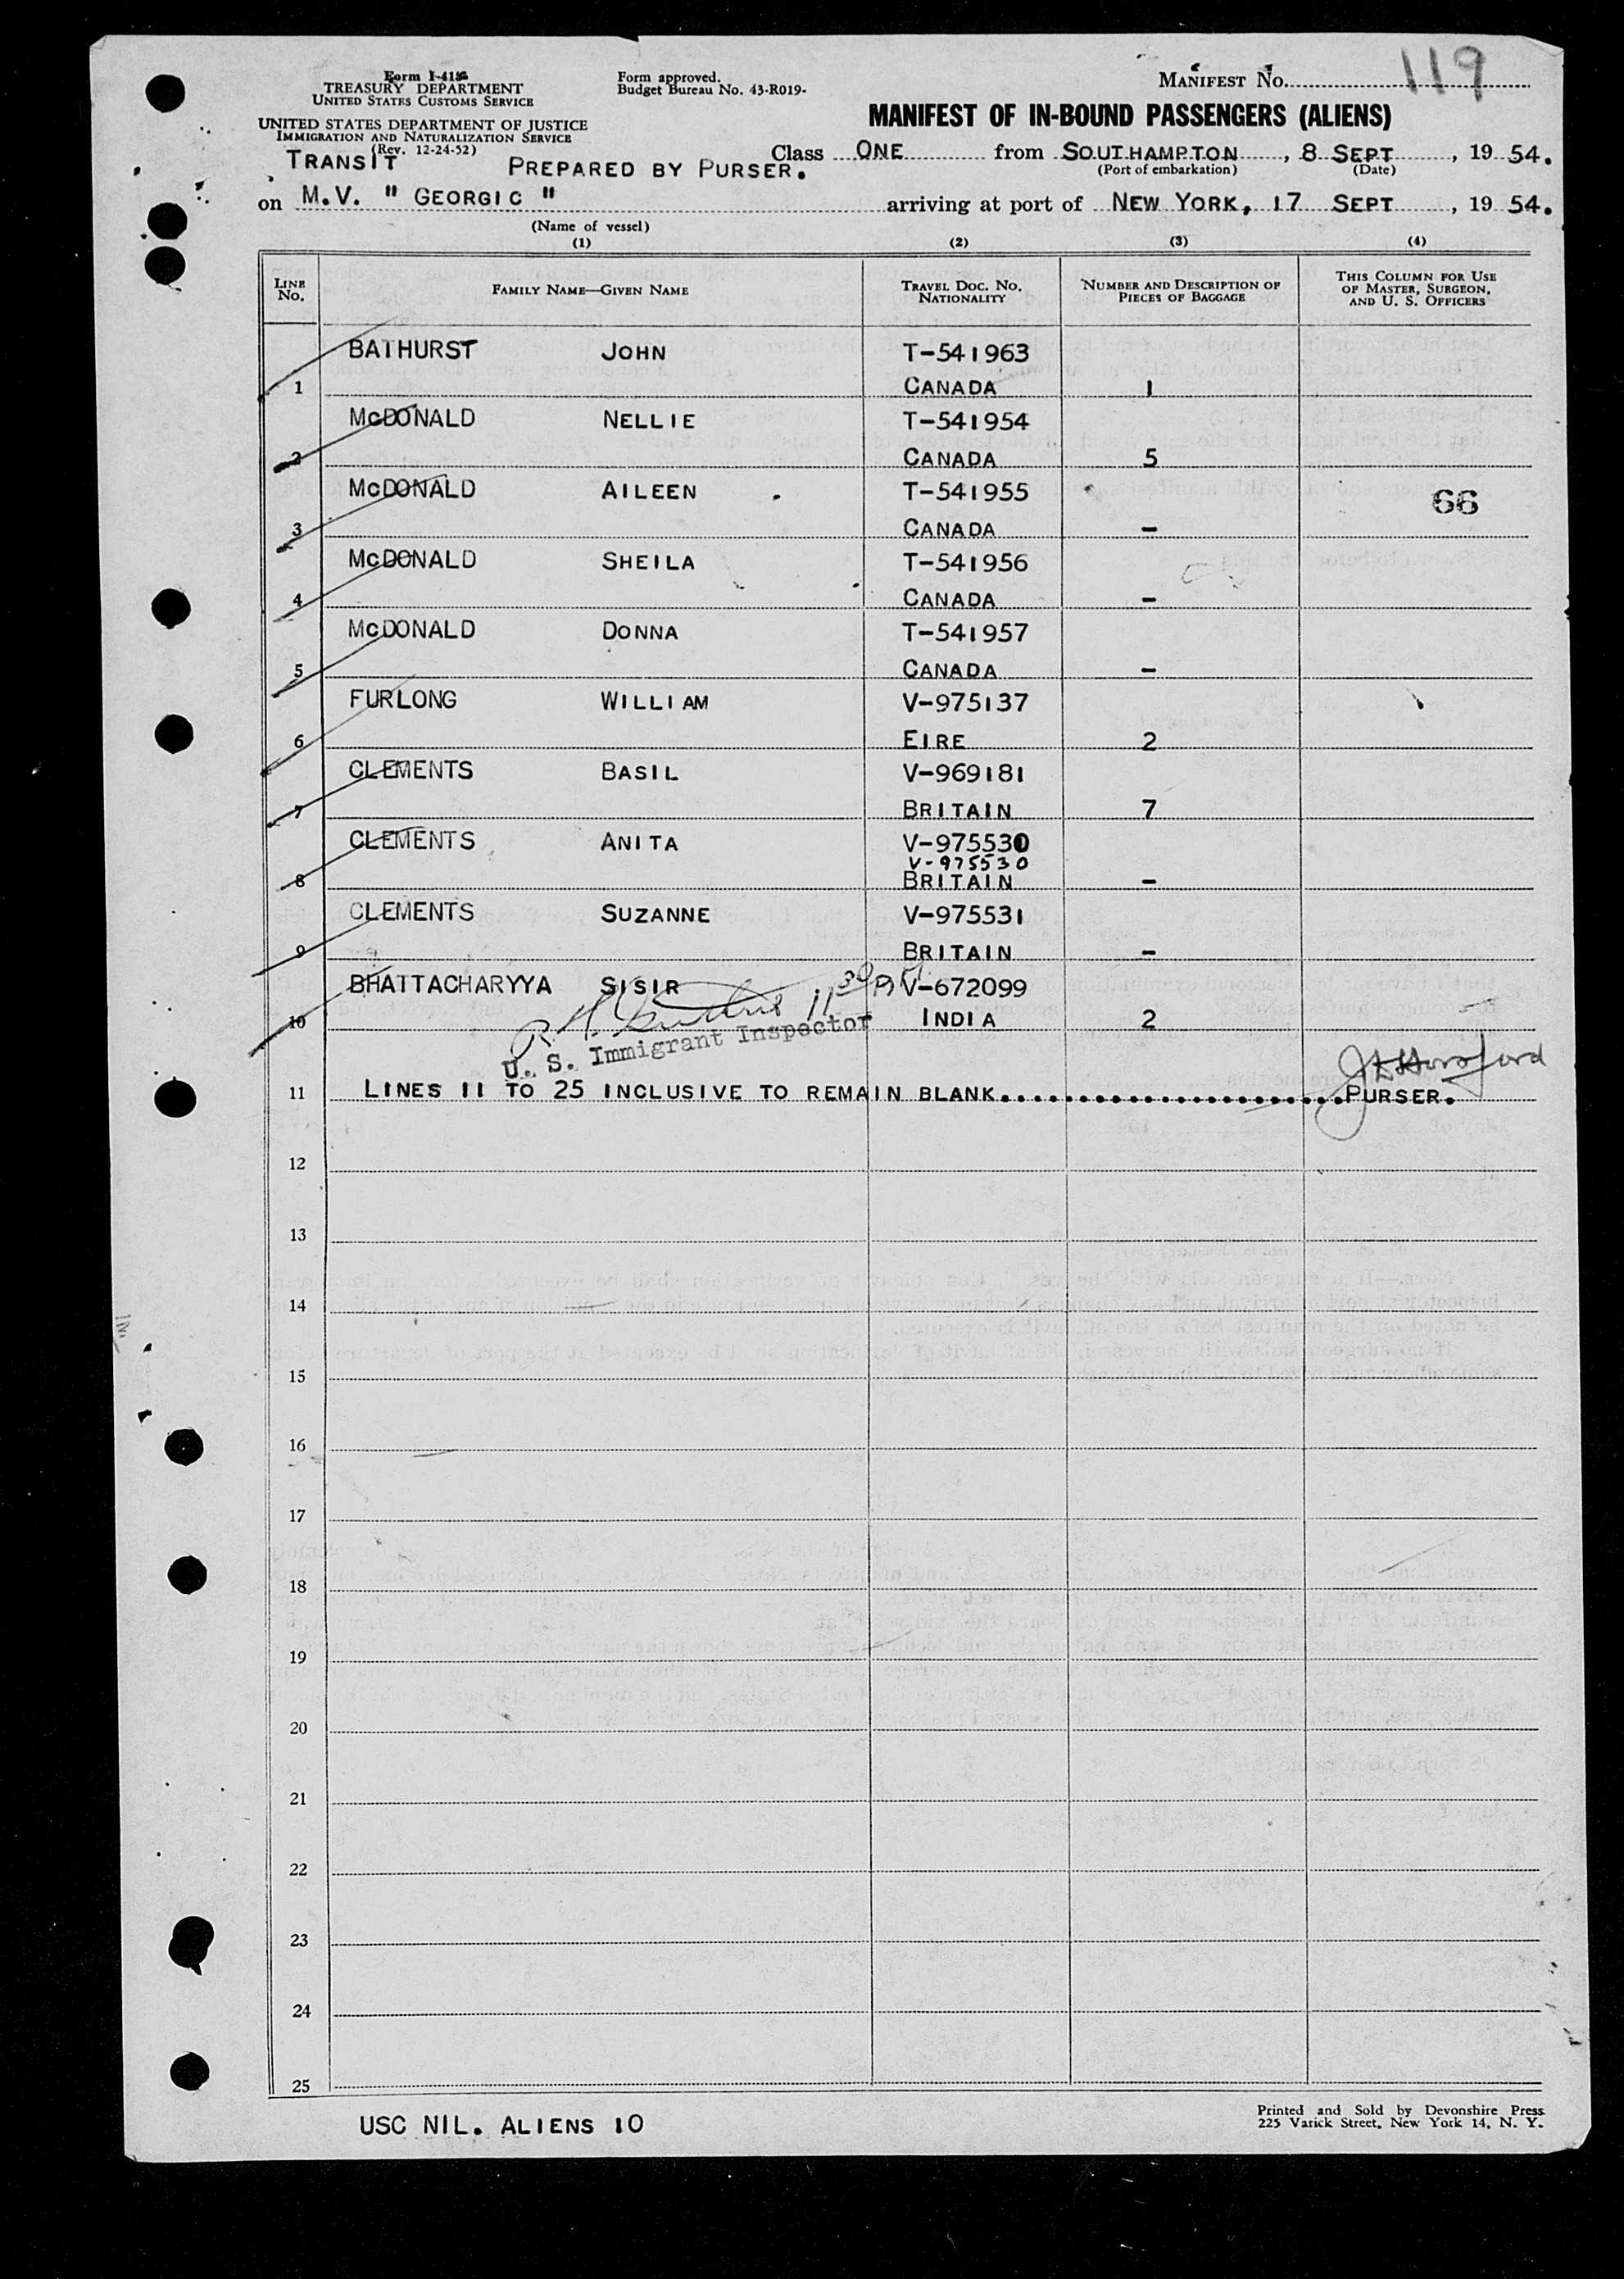 Form I-418
TREASURY DEPARTMENT
UNITED STATES CUSTOMS SERVICE
UNITED STATES DEPARTMENT OF JUSTICE
IMMIGRATION AND NATURALIZATION SERVICE
(Rev. 12-24-52)
Form approved.
Budget Bureau No. 43-R019-
MANIFEST No. 119
MANIFEST OF IN-BOUND PASSENGERS (ALIENS)
TRANSIT PREPARED BY PURSER. Class ONE from SOUTHAMPTON, 8 SEPT, 19 54.
(Port of embarkation) (Date)
on M.V. " GEORGIC " arriving at port of NEW YORK, 17 SEPT, 19 54.
(Name of vessel)
(1) (2) (3) (4)
LINE No. FAMILY NAME—GIVEN NAME TRAVEL DOC. No. NATIONALITY NUMBER AND DESCRIPTION OF PIECES OF BAGGAGE THIS COLUMN FOR USE OF MASTER, SURGEON, AND U. S. OFFICERS
BATHURST JOHN T-541963
1 CANADA 1
McDONALD NELLIE T-541954
2 CANADA 5
McDONALD AILEEN T-541955 66
3 CANADA -
McDONALD SHEILA T-541956
4 CANADA -
McDONALD DONNA T-541957
5 CANADA -
FURLONG WILLIAM V-975137
6 EIRE 2
CLEMENTS BASIL V-969181
7 BRITAIN 7
CLEMENTS ANITA V-975530
V-975530
8 BRITAIN -
CLEMENTS SUZANNE V-975531
9 BRITAIN -
BHATTACHARYYA SISIR V-672099
10 INDIA 2
R. H. 11 30 PM
U. S. Immigrant Inspector
11 LINES 11 TO 25 INCLUSIVE TO REMAIN BLANK....................... PURSER.
12
13
14
15
16
17
18
19
20
21
22
23
24
25
USC NIL. ALIENS 10
Printed and Sold by Devonshire Press
225 Varick Street, New York 14, N. Y.